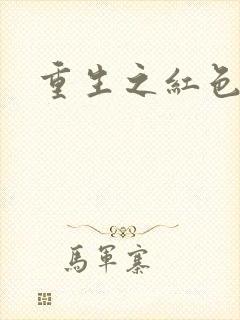 重生之紅色
馬軍寨